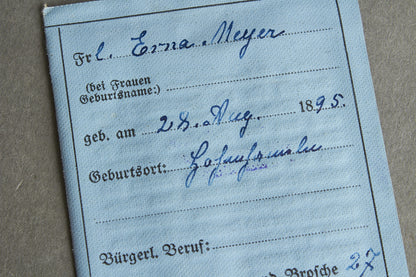 Frl. Erna Meyer
(bei Frauen
Geburtsname:)
geb. am 28. Aug. 1895.
Geburtsort:
Bürgerl. Beruf:
Brosche 27